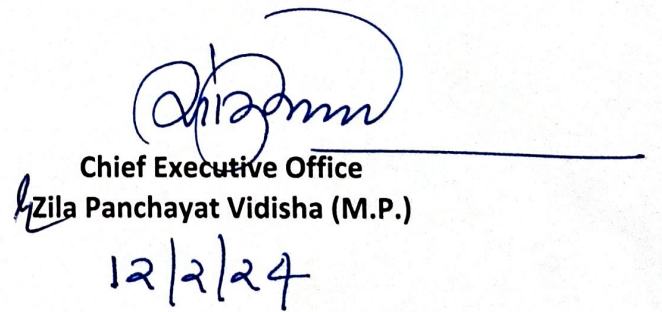 Chief Executive Office
Zila Panchayat Vidisha (M.P.)
12/2/24